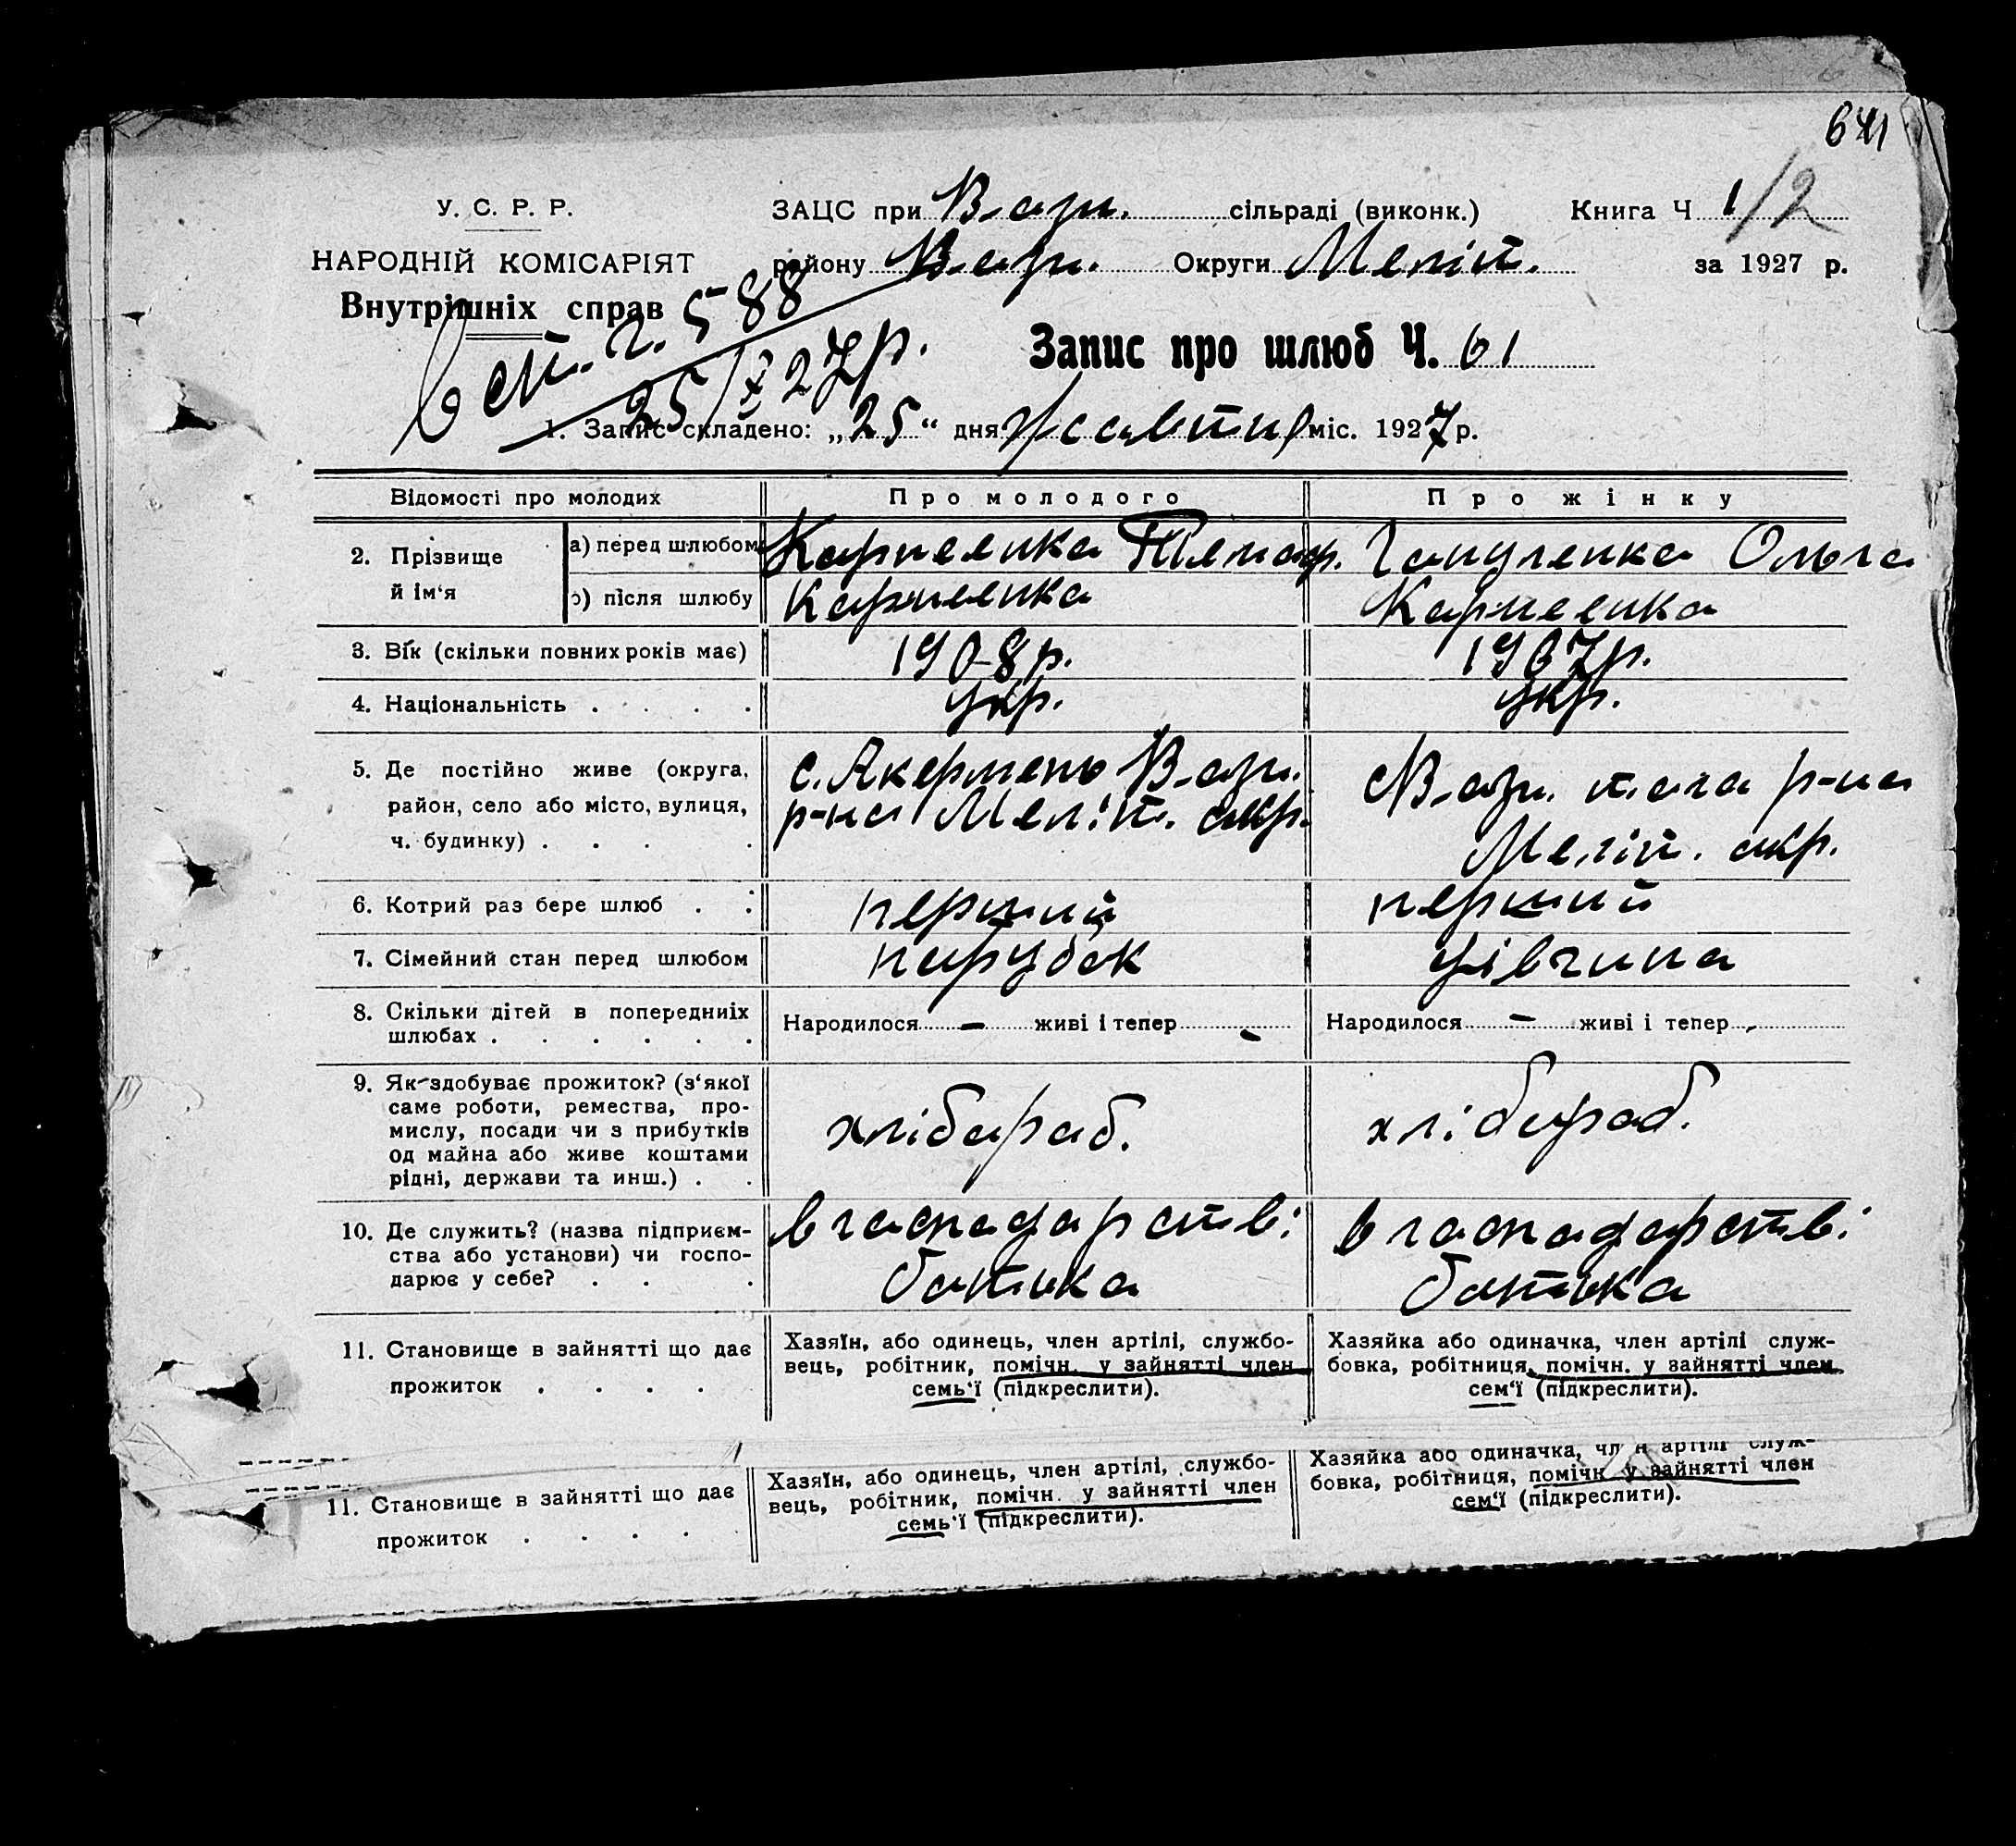 641
У. С. Р. Р.
НАРОДНІЙ КОМІСАРІЯТ
Внутрішніх справ
ЗАЦС при сільраді (виконк.) Книга Ч 1/2
району Округи Меліт. за 1927 р.
588
25/X 27р.
Запис про шлюб Ч. 61
1. Запис складено: „25“ дня жовтня міс. 1927 р.
Відомості про молодих Про молодого Про жінку
2. Прізвище й ім‘я
а) перед шлюбом Карпенко Ольга
після шлюбу Карпенко Карпенко
3. Вік (скільки повних років має) 1908 р. 1907 р.
4. Національність . . . . укр. укр.
5. Де постійно живе (округа, с. Акермень
район, село або місто, вулиця, р-на Меліт. окр. р-на
ч. будинку) . . . . Меліт. окр.
6. Котрий раз бере шлюб . . перший перший
7. Сімейний стан перед шлюбом парубок дівчина
8. Скільки дітей в попередниіх
шлюбах . . . . . . Народилося — живі і тепер - Народилося — живі і тепер -
9. Як здобуває прожиток? (з‘якої
саме роботи, ремества, про-
мислу, посади чи з прибутків хлібороб. хлібороб.
од майна або живе коштами
рідні, держави та инш.) . .
10. Де служить? (назва підприєм- в господарстві в господарстві
ства або установи) чи госпо- батька батька
дарює у себе? . . .
11. Становище в зайнятті що дає
прожиток . . . .
Хазяїн, або одинець, член артілі, службо-
вець, робітник, помічн. у зайнятті член
семь‘ї (підкреслити).
Хазяйка або одиначка, член артілі служ-
бовка, робітниця, помічн. у зайнятті член
сем‘ї (підкреслити).
11. Становище в зайнятті що дає
прожиток . . . .
Хазяїн, або одинець, член артілі, службо-
вець, робітник, помічн. у зайнятті член
семь‘ї (підкреслити).
Хазяйка або одиначка, член артілі служ-
бовка, робітниця, помічн. у зайнятті член
сем‘ї (підкреслити).